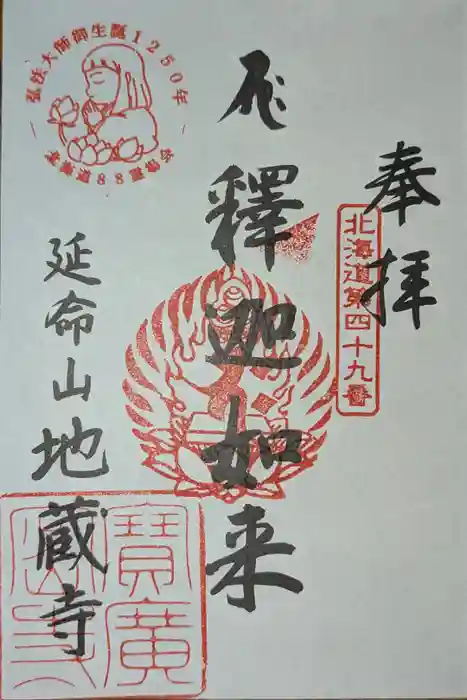 奉拝
北海道第四十九番
釋迦如来
延命山地蔵寺
弘法大師御生誕1250年
北海道88
寶廣